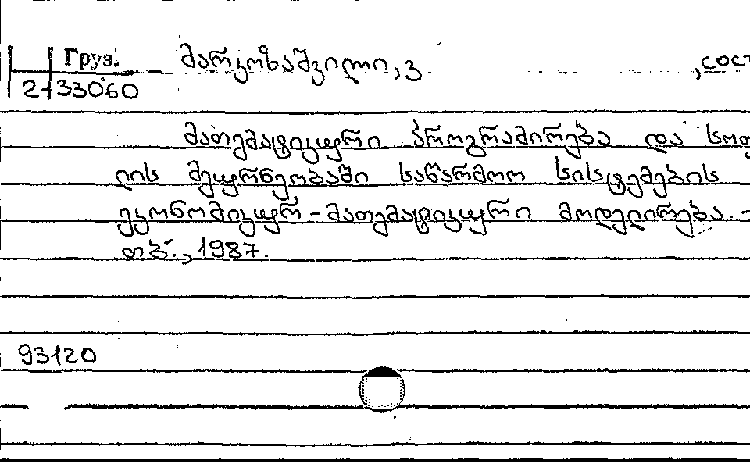 Груз. მარკოზაშვილი, ვ ,сост
2-33060
მათემატიკური პროგრამირება და სოფ
ლის მეურნეობაში საწარმოო სისტემების
ეკონომიკურ-მათემატიკური მოდელირება.-
თბ., 1987.
93120